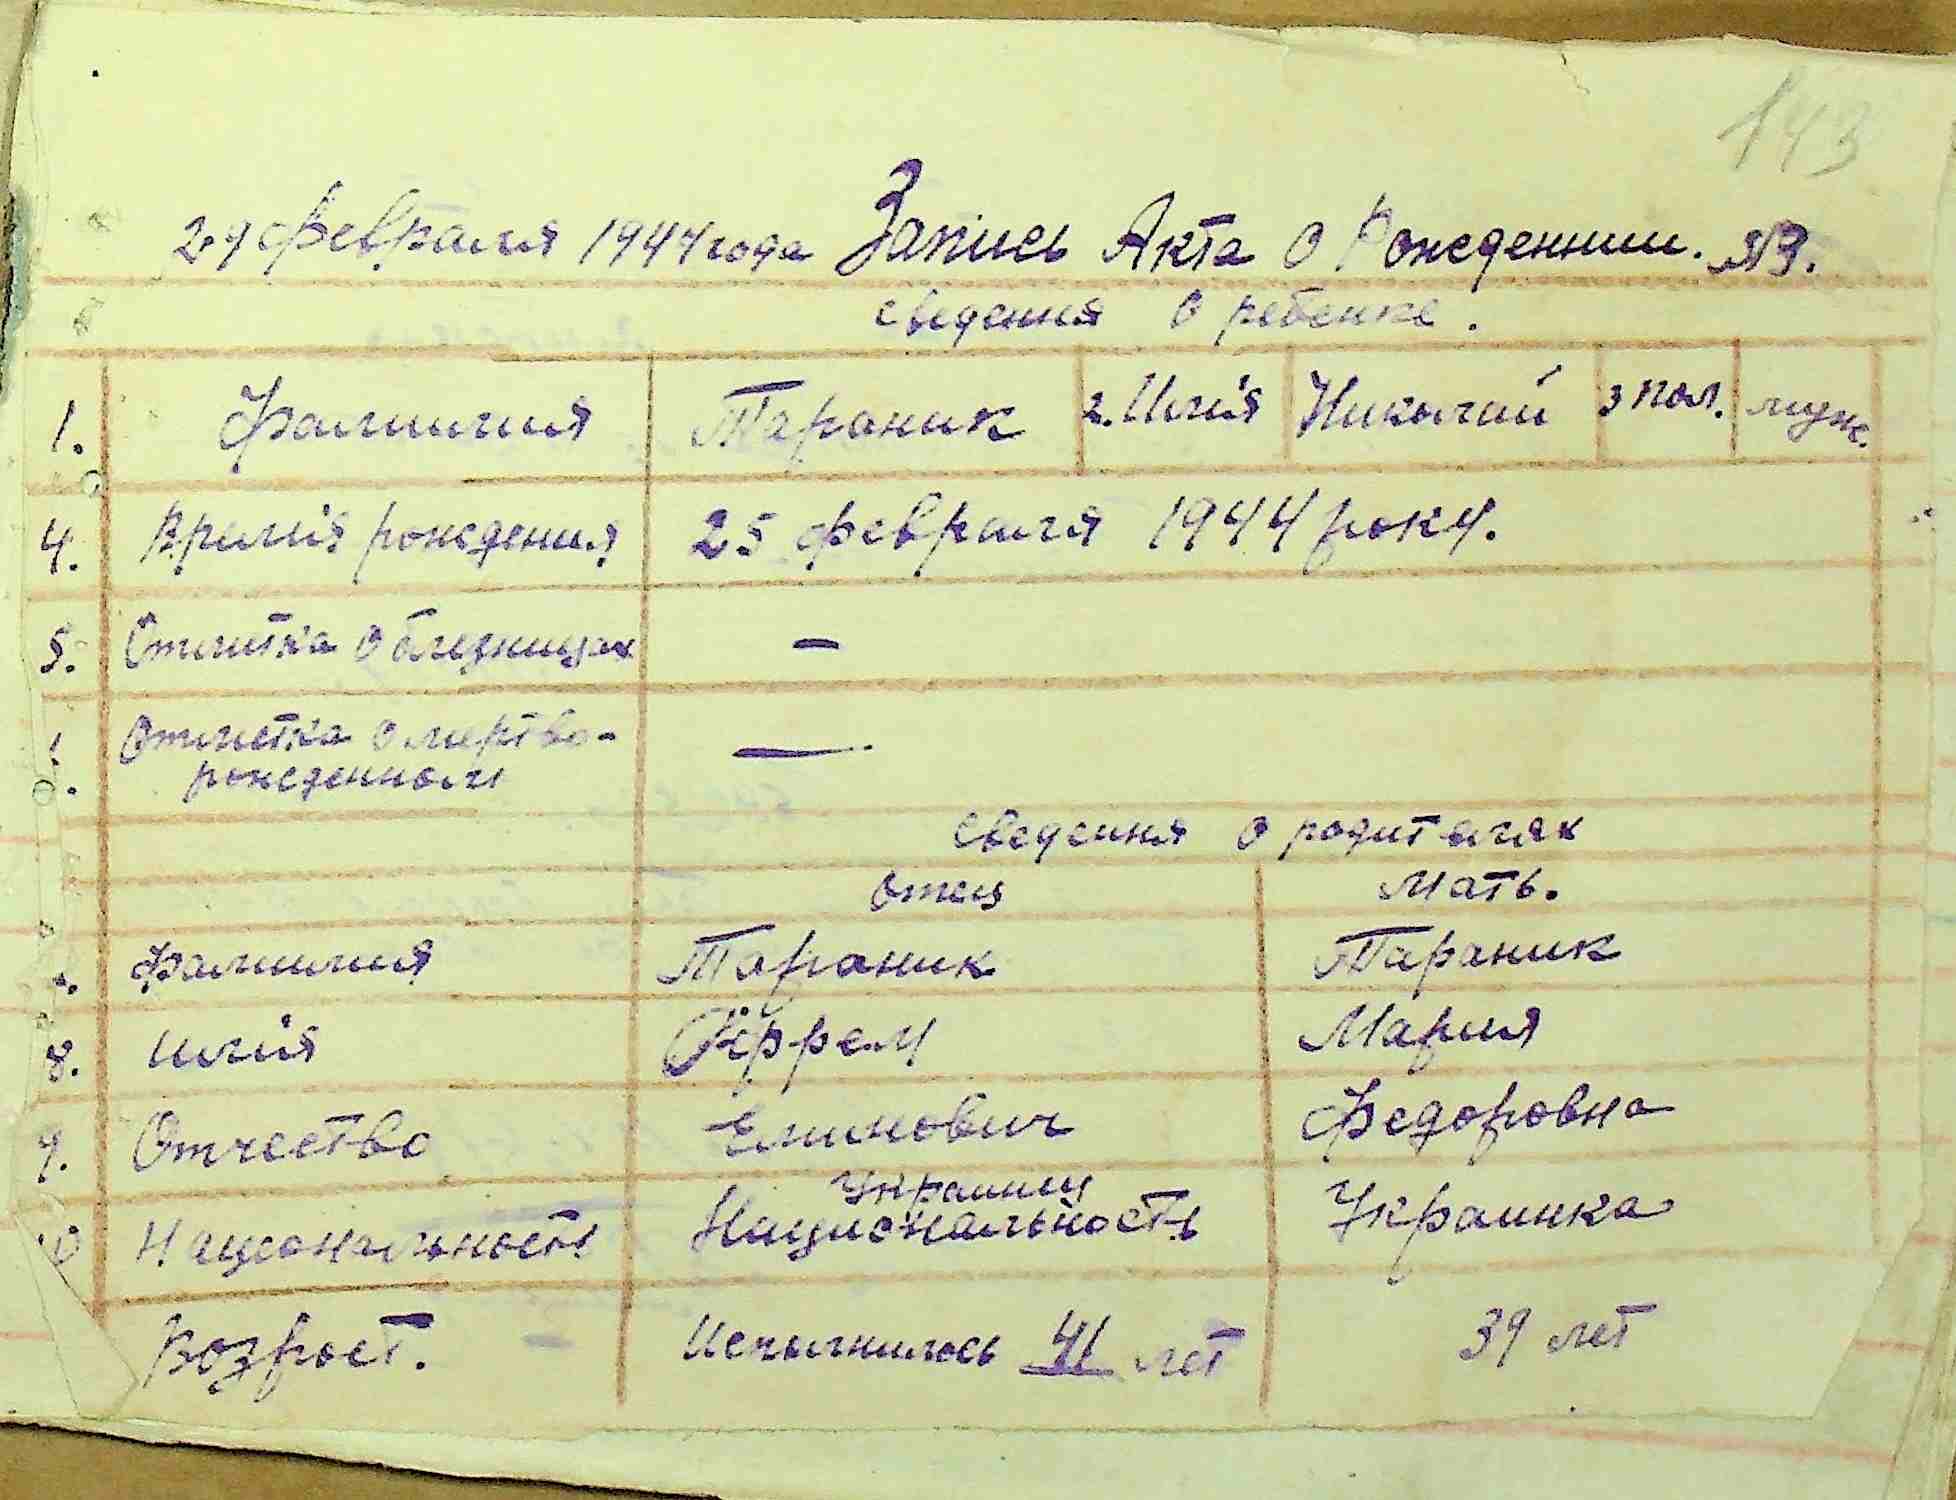 143
29 февраля 1944 года Запись Акта о Рожденнии. №3.
сведения о ребенке.
1. Фамилия Тараник 2. Имія Николай 3 пол. муж.
4. Времія рождения 25 февраля 1944 року.
5. Отметка о близницах —
Отметка о мертво-
рожденном —
сведения о родителях
Отец Мать.
Фамилия Тараник Тараник
8. Имія Ефрем Мария
9. Отчество Федоровна
Украинец
Нацональность Национальность Украинка
Возраст. Исполнилось 41 лет 39 лет